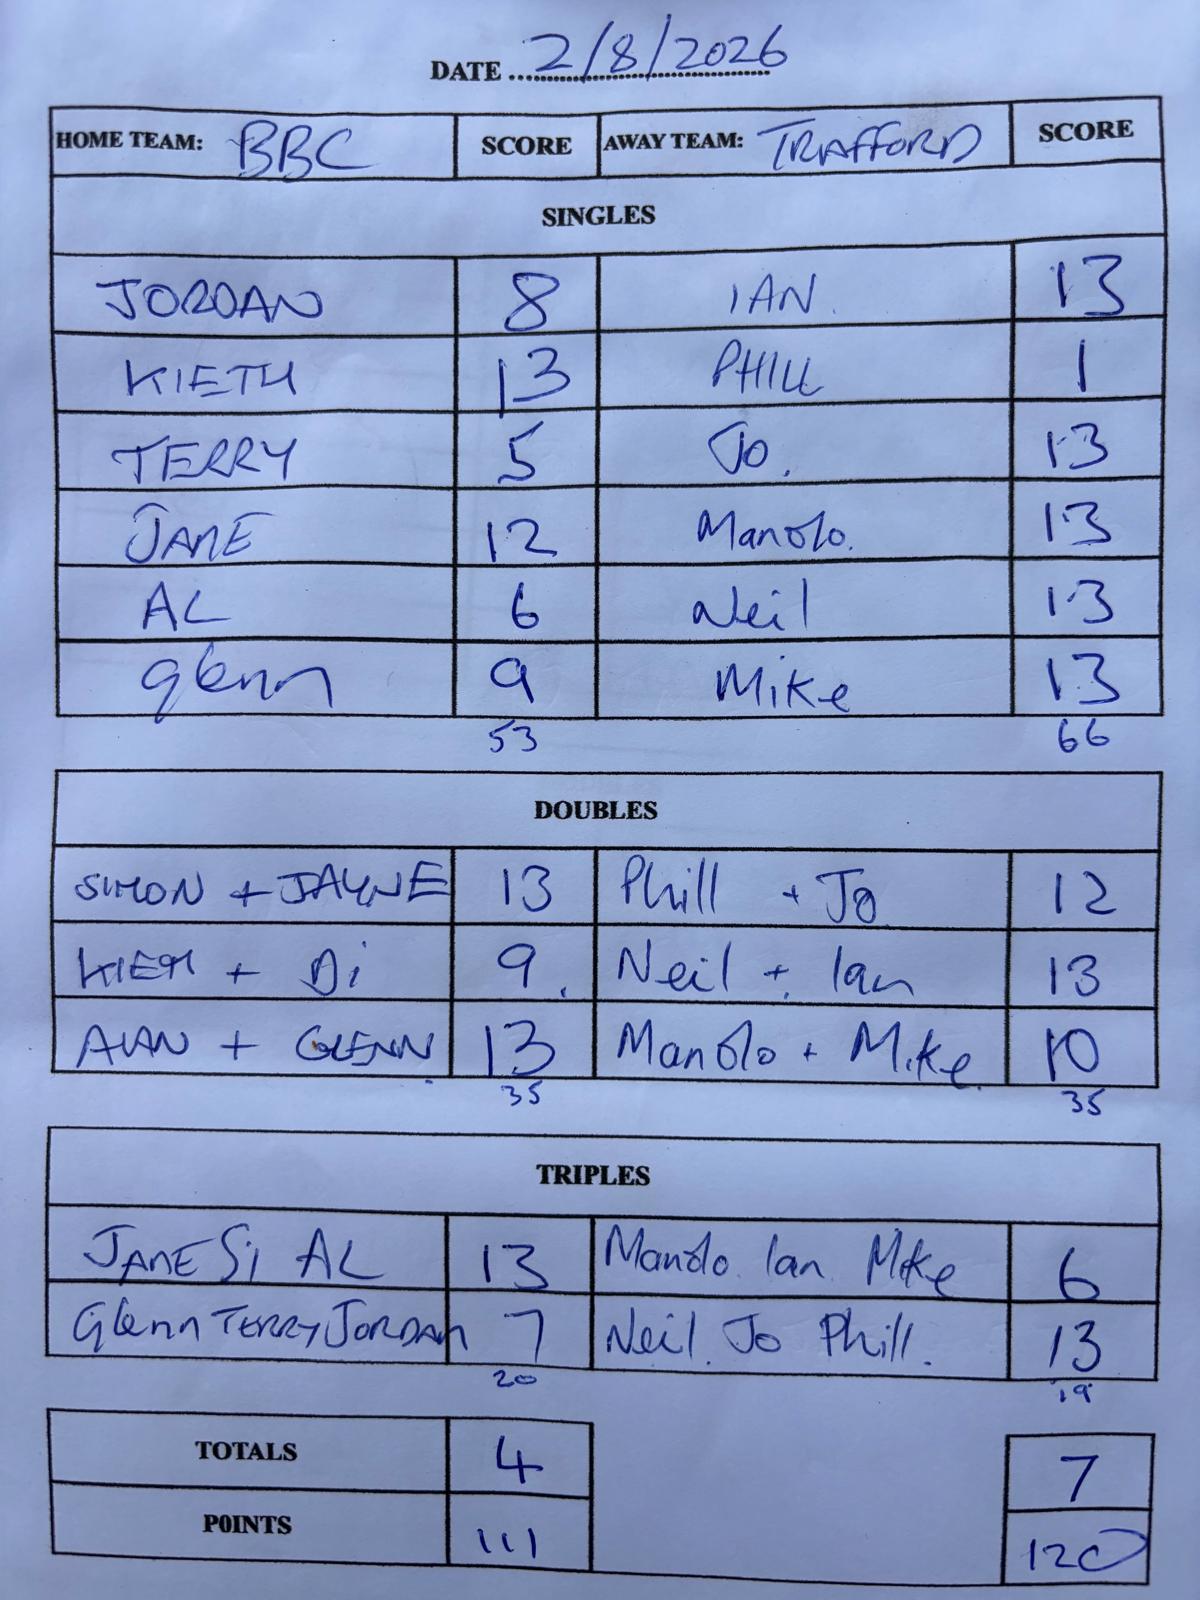 DATE 2/8/2026
HOME TEAM: BBC SCORE AWAY TEAM: TRAFFORD SCORE
SINGLES
JORDAN 8 IAN. 13
KIETH 13 PHILL 1
TERRY 5 Jo. 13
JANE 12 Manolo. 13
AL 6 Neil 13
Glenn 9 Mike 13
53 66
DOUBLES
SIMON + JAYNE 13 Phill + Jo 12
KIETH + Di 9. Neil + Ian 13
ALAN + GLENN 13 Manolo + Mike. 10
35 35
TRIPLES
JANE Si AL 13 Manolo. Ian Mike 6
Glenn TERRY JORDAN 7 Neil. Jo Phill. 13
20 19
TOTALS 4 7
POINTS 111 120